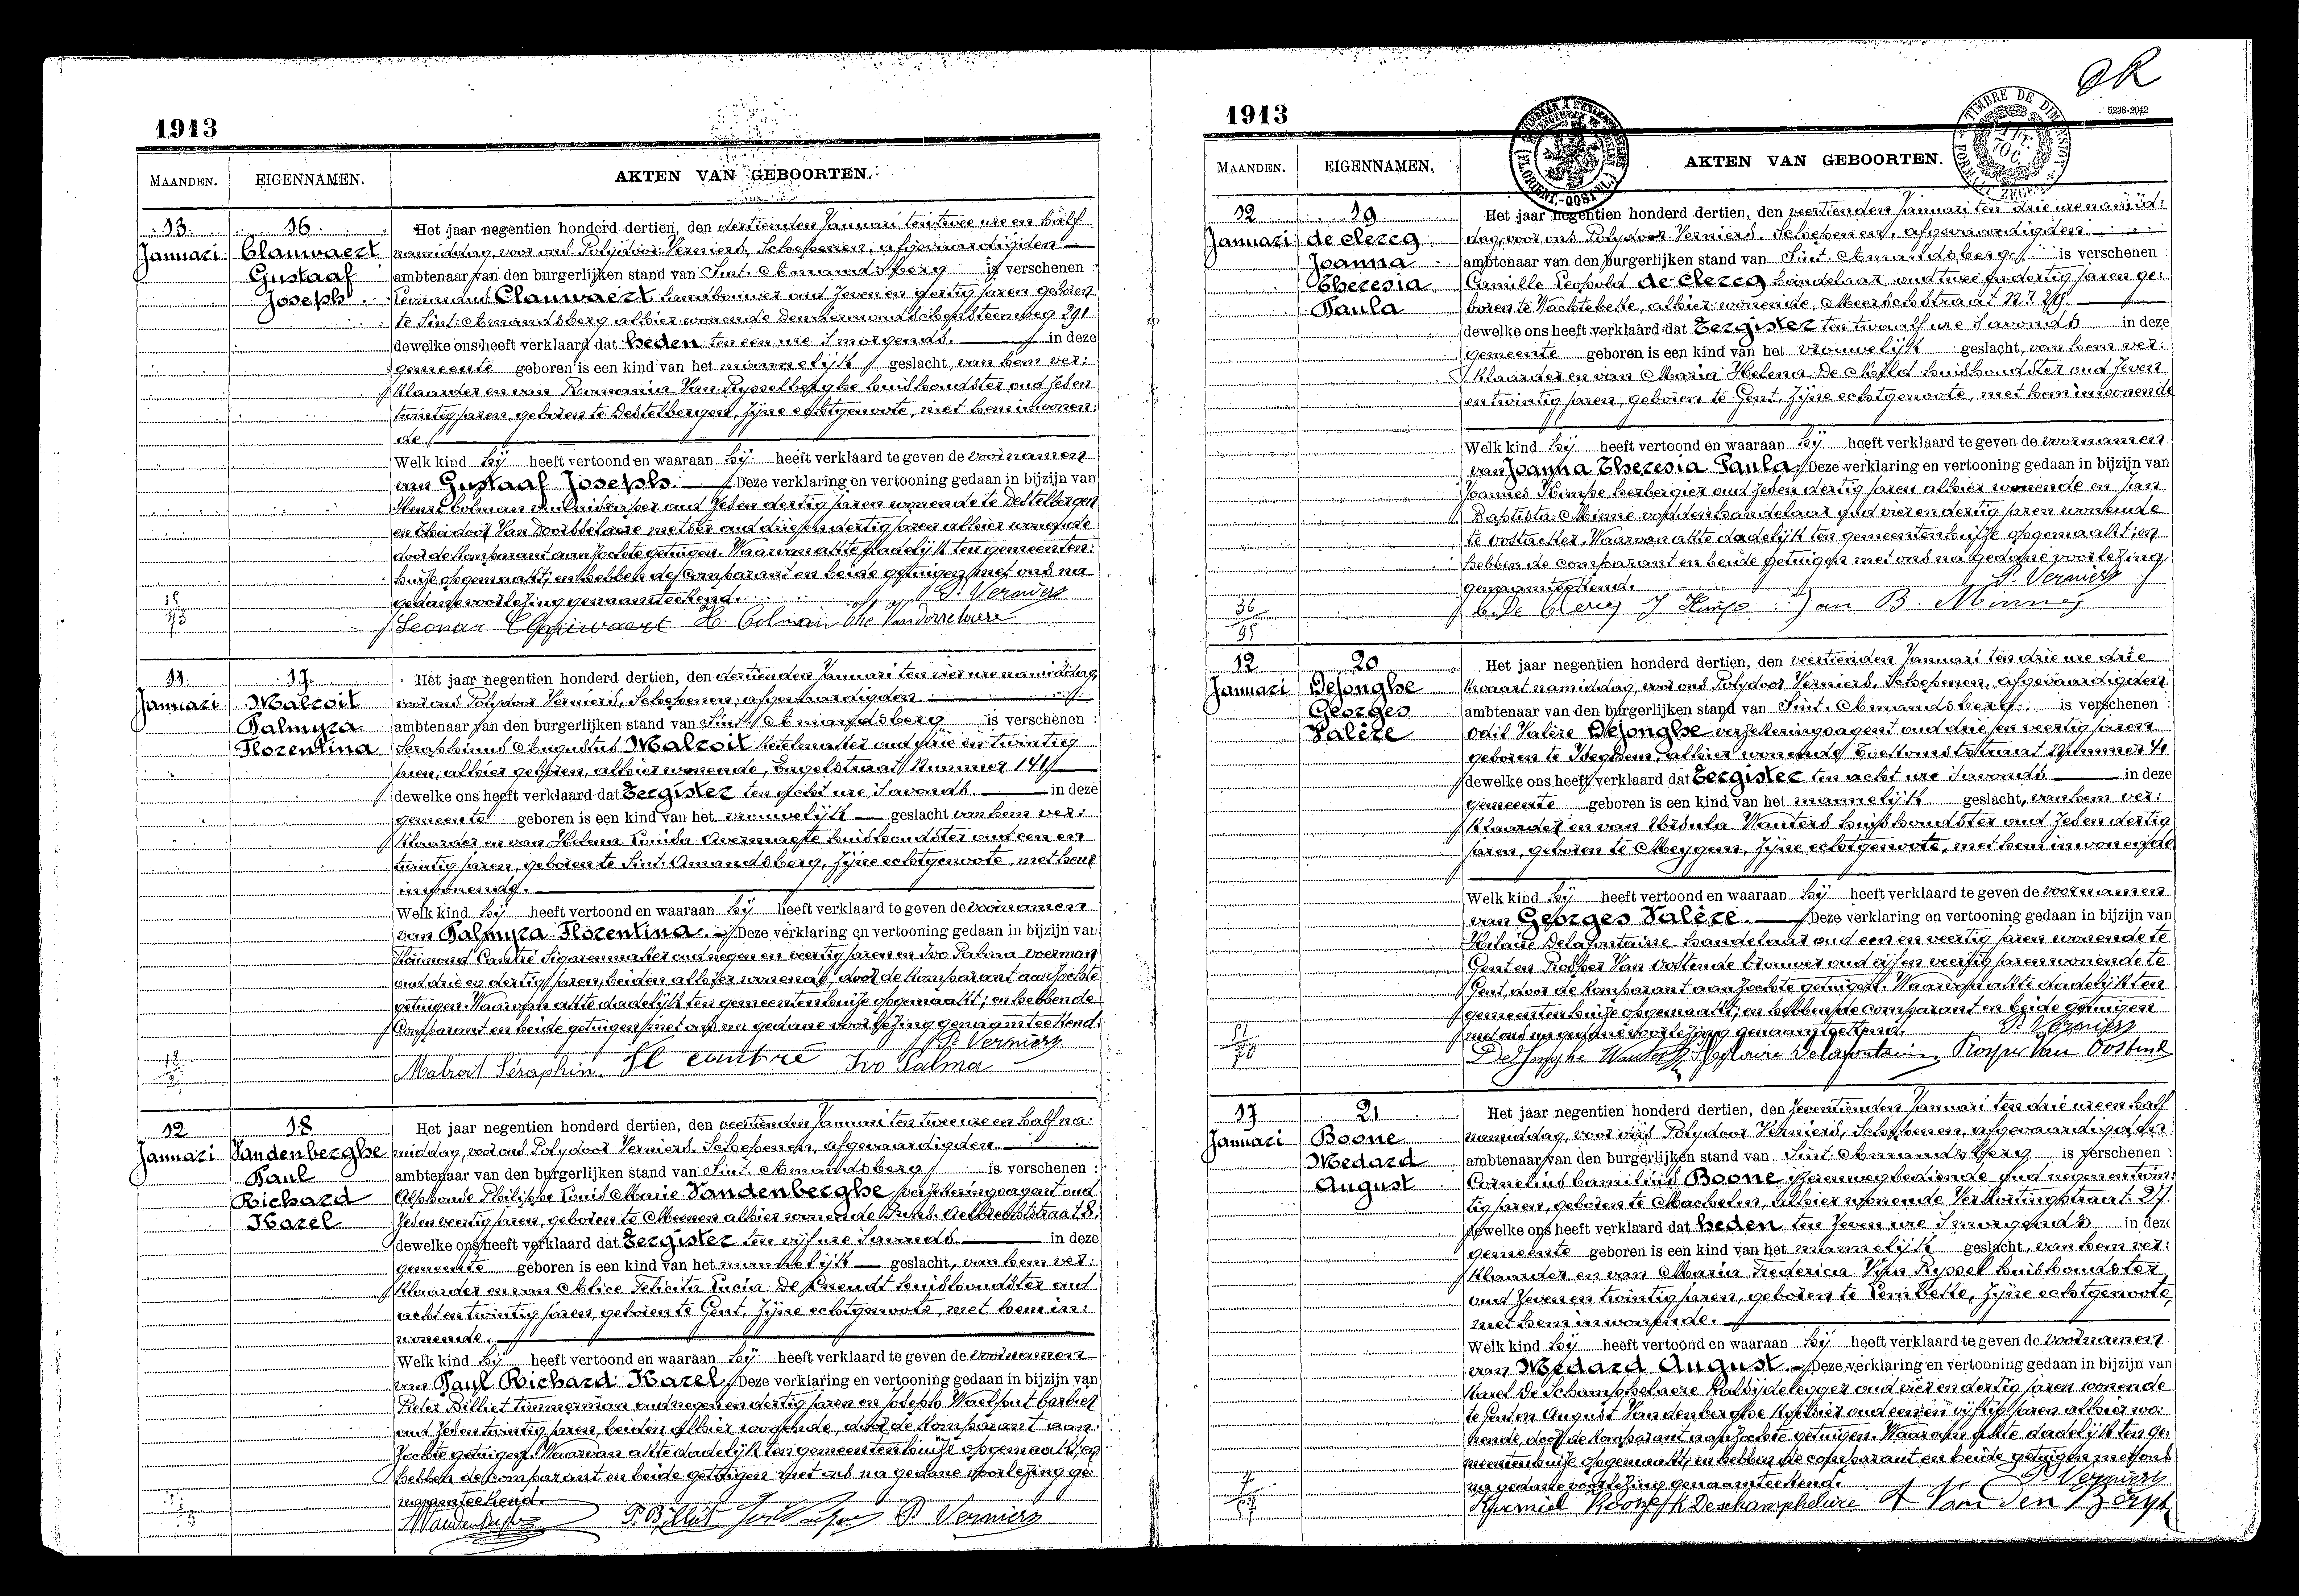 1913
MAANDEN. EIGENNAMEN. AKTEN VAN GEBOORTEN.
13 Januari
16
Clauwaert
Gustaaf
Joseph
Het jaar negentien honderd dertien, den dertienden Januari ten twee ure en half
namiddag, voor ons Polydoor Verniers, Schepenen, afgevaardigden
ambtenaar van den burgerlijken stand van Sint. Amandsberg is verschenen :
Clauwaert landbouwer oud zeven en dertig jaren geboren
te Sint. Amandsberg alhier wonende Dendermondschensteenweg 291
dewelke ons heeft verklaard dat heden ten een ure 's morgends. in deze
gemeente geboren is een kind van het mannelijk geslacht, van hem ver:
klaarder en van Romania Van Rysselberghe huishoudster oud zes en
twintig jaren, geboren te Destelbergen, zijne echtgenoote, met hem inwonen:
de
Welk kind hij heeft vertoond en waaraan hij heeft verklaard te geven de voornamen
van Gustaaf Joseph. Deze verklaring en vertooning gedaan in bijzijn van
Henri Colman oud zes en dertig jaren wonende te Destelbergen
en Theodoor Van Doorselaere metser oud drie en dertig jaren alhier wonende
door de komparant aanzochte getuigen. Waarvan akte dadelijk ten gemeenten:
huize opgemaakt; en hebben de comparant en beide getuigen met ons na
gedane voorlezing genaamteekend. P. Verniers
H. Colman
11 Januari
17
Malroit
Palmyra
Florentina
Het jaar negentien honderd dertien, den dertienden Januari ten vier ure namiddag,
voor ons Polydoor Verniers, Schepenen, afgevaardigden
ambtenaar van den burgerlijken stand van Sint. Amandsberg is verschenen :
Seraphinus Augustus Malroit ketelmaker oud drie en twintig
jaren, alhier geboren, alhier wonende, Engelstraat Nummer 141
dewelke ons heeft verklaard dat Eergister ten acht ure 's avonds. in deze
gemeente geboren is een kind van het vrouwelijk geslacht van hem ver:
klaarder en van Helena Louisa Avermaete huishoudster oud een en
twintig jaren, geboren te Sint. Amandsberg, zijne echtgenoote, met hem
inwonende.
Welk kind hij heeft vertoond en waaraan hij heeft verklaard te geven de voornamen
van Palmyra Florentina. Deze verklaring en vertooning gedaan in bijzijn van
Cantré Sigarenmaker oud negen en veertig jaren en Ivo Palma voerman
oud drie en dertig jaren, beiden alhier wonende, door de komparant aanzochte
getuigen. Waarvan akte dadelijk ten gemeentenhuize opgemaakt; en hebben de
Comparant en beide getuigen met ons na gedane voorlezing genaamteekend.
P. Verniers
Malroit Séraphin. Ivo Palma
12 Januari
18
Vandenberghe
Paul
Richard
Karel
Het jaar negentien honderd dertien, den veertienden Januari ten twee ure en half na:
middag, voor ons Polydoor Verniers, Schepenen, afgevaardigden
ambtenaar van den burgerlijken stand van Sint. Amandsberg is verschenen :
Alphonse Philippe Louis Marie Vandenberghe verzekeringsagent oud
zes en veertig jaren, geboren te Meenen alhier wonende
dewelke ons heeft verklaard dat Eergister ten vijf ure 's avonds in deze
gemeente geboren is een kind van het mannelijk geslacht, van hem ver:
klaarder en van Alice Felicita Lucia De huishoudster oud
acht en twintig jaren, geboren te Gent, zijne echtgenoote, met hem in:
wonende.
Welk kind hij heeft vertoond en waaraan hij heeft verklaard te geven de voornamen
van Paul Richard Karel Deze verklaring en vertooning gedaan in bijzijn van
Pieter Billiet timmerman oud negen en dertig jaren en Joseph Waelput barbier
oud zes en twintig jaren, beiden alhier wonende, door de komparant aan:
zochte getuigen. Waarvan akte dadelijk ten gemeentenhuize opgemaakt, en
hebben de comparant en beide getuigen met ons na gedane voorlezing ge:
naamteekend.
P. Billiet P. Verniers
ok
1913
5238-2042
TIMBRE DE DIMENSION
MAANDEN. EIGENNAMEN. AKTEN VAN GEBOORTEN.
12 Januari
19
de Clercq
Joanna
Theresia
Paula
Het jaar negentien honderd dertien, den veertienden Januari ten drie ure namid:
dag, voor ons Polydoor Verniers. Schepenen, afgevaardigden
ambtenaar van den burgerlijken stand van Sint. Amandsberg is verschenen :
Camille Leopold de Clercq handelaar oud twee en dertig jaren ge:
boren te Wachtebeke, alhier wonende, Meerschstraat
dewelke ons heeft verklaard dat Eergister ten twaalf ure 's avonds in deze
gemeente geboren is een kind van het vrouwelijk geslacht, van hem ver:
klaarder en van Maria Helena De huishoudster oud zeven
en twintig jaren, geboren te Gent, zijne echtgenoote, met hem inwonende
Welk kind hij heeft vertoond en waaraan hij heeft verklaard te geven de voornamen
van Joanna Theresia Paula Deze verklaring en vertooning gedaan in bijzijn van
Joannes Kimpe herbergier oud zes en dertig jaren alhier wonende en Jan
Baptista Minne voddenhandelaar oud vier en dertig jaren wonende
te Oostacker. Waarvan akte dadelijk ten gemeentenhuize opgemaakt; en
hebben de comparant en beide getuigen met ons na gedane voorlezing
genaamteekend. P. Verniers
C. De Clercq J Kimpe Jan B. Minne
36
95
12 Januari
20
DeJonghe
Georges
Valère
Het jaar negentien honderd dertien, den veertienden Januari ten drie ure drie
kwaart namiddag, voor ons Polydoor Verniers, Schepenen, afgevaardigden
ambtenaar van den burgerlijken stand van Sint. Amandsberg is verschenen :
Odil Valère DeJonghe verzekeringsagent oud drie en veertig jaren
geboren te Iseghem, alhier wonende Toekomststraat Nummer
dewelke ons heeft verklaard dat Eergister ten acht ure 's avonds in deze
gemeente geboren is een kind van het mannelijk geslacht, van hem ver:
klaarder en van Ursula Wauters huishoudster oud zes en dertig
jaren, geboren te Meygem, zijne echtgenoote, met hem inwonende
Welk kind hij heeft vertoond en waaraan hij heeft verklaard te geven de voornamen
van Georges Valère. Deze verklaring en vertooning gedaan in bijzijn van
Hilaire Delafontaine handelaar oud een en veertig jaren wonende te
Gent en Prosper Van Oostende brouwer oud vijf en veertig jaren wonende te
Gent, door de komparant aanzochte getuigen. Waarvan akte dadelijk ten
gemeentenhuize opgemaakt; en hebben de comparant en beide getuigen
met ons na gedane voorlezing genaamteekend. P. Verniers
DeJonghe Delafontaine Prosper Van Oostende
51
70
17 Januari
21
Boone
Medard
August
Het jaar negentien honderd dertien, den zeventienden Januari ten drie ure en half
namiddag, voor ons Polydoor Verniers, Schepenen, afgevaardigden
ambtenaar van den burgerlijken stand van Sint. Amandsberg is verschenen :
Cornelius Camilius Boone ijzerenwegbediende oud negen en twin:
tig jaren, geboren te Machelen, alhier wonende Verkortingstraat 27.
dewelke ons heeft verklaard dat heden ten zeven ure 's morgends in deze
gemeente geboren is een kind van het mannelijk geslacht, van hem ver:
klaarder en van Maria Frederica Van Ryssel huishoudster
oud zeven en twintig jaren, geboren te Lembeke, zijne echtgenoote,
met hem inwonende.
Welk kind hij heeft vertoond en waaraan hij heeft verklaard te geven de voornamen
van Medard August. Deze verklaring en vertooning gedaan in bijzijn van
Karel De Schamphelaere kalsijdelegger oud vier en dertig jaren wonende
te Gent en August Vandenberghe oud een en vijftig jaren alhier wo:
nende, door de komparant aanzochte getuigen. Waarvan akte dadelijk ten ge:
meentenhuize opgemaakt; en hebben de comparant en beide getuigen met ons
na gedane voorlezing genaamteekend. P. Verniers
Boone K Deschamphelaire